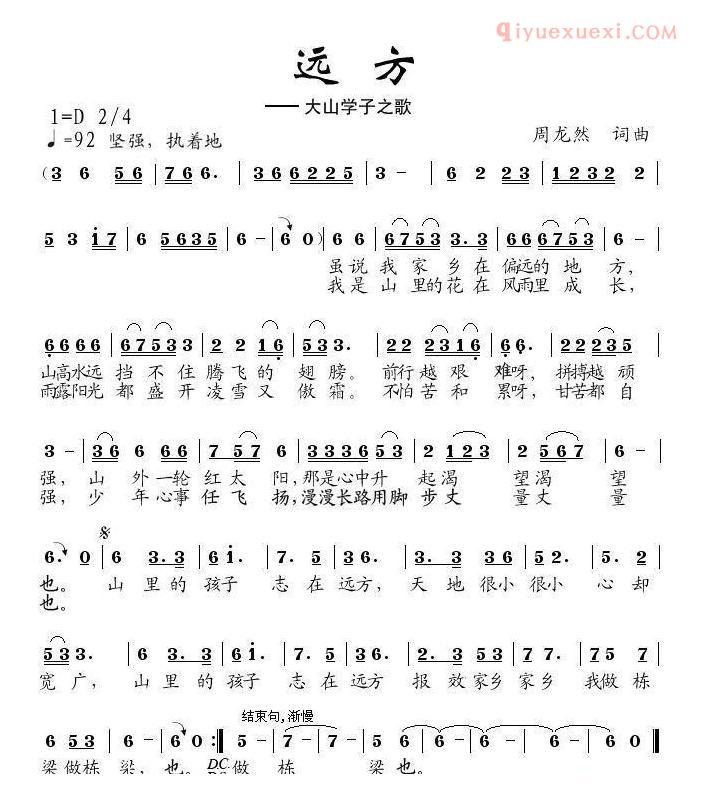 qiyuexuexi.COM
远 方
—— 大山学子之歌
1=D 2/4
♩=92 坚强，执着地
周龙然 词曲
(3 6 5 6 | 7 6 6. | 3 6 6 2 2 5 | 3 – | 6 2 2 3 | 1 2 3 2 2 |
5 3 1 7 | 6 5 6 3 5 | 6 – | 6 0) | 6 6 | 6 7 5 3 3. 3 | 6 6 6 7 5 3 | 6 – |
虽 说 我 家 乡 在 偏远的 地 方，
我 是 山 里的 花 在 风雨里 成 长，
6 6 6 6 | 6 7 5 3 3 | 2 2 1 6 | 5 3 3. | 2 2 2 3 1 6 | 6 6. | 2 2 2 3 5 |
山高水远 挡 不 住 腾 飞 的 翅 膀。 前行 越 艰 难呀， 拼搏越 顽
雨露阳光 都 盛 开 凌 雪 又 傲 霜。 不怕 苦 和 累呀， 甘苦都 自
3 – | 3 3 6 | 6 6 6 | 7 5 7 | 6 3 3 3 6 5 3 | 2 1 2 3 | 2 5 6 7 | 6 – |
强， 山 外 一轮 红 太 阳，那是心中升 起 渴 望 渴 望
强， 少 年 心事 任 飞 扬，漫漫长路用脚 步 丈 量 丈 量
6. 0 | 6 3. 3 | 6 1. | 7. 5 | 3 3. | 2. 3 | 5 6 5 3 | 5. 2 |
也。 山 里 的 孩子 志 在 远方， 天 地 很小 很小 心 却
也。
5 3 3. | 6 3. 3 | 6 1. | 7. 5 | 3 3. | 2. 3 5 3 | 7 7. | 7 5 7 |
宽 广， 山 里 的 孩子 志 在 远方 报 效 家乡 家乡 我做 栋
结束句,渐慢
6 5 3 | 6 – | 6 0 :| 5 5 | 7 – | 7 – | 5 6 | 6 – | 6 – | 6 0 ||
梁 做栋 梁， 也。 D.C. 做 栋 梁 也。